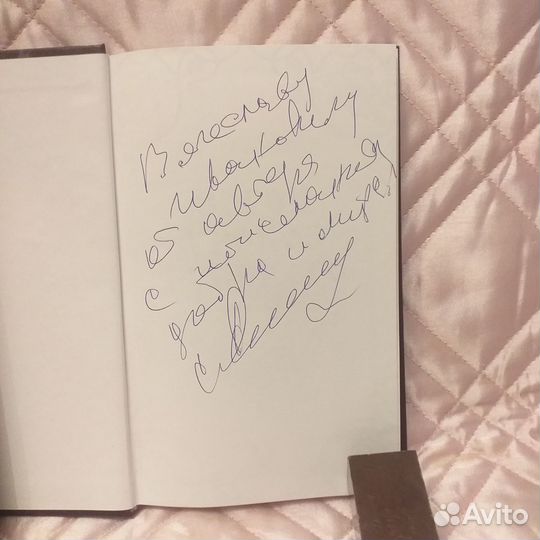 Вячеславу
Ивановичу
от автора
с пожеланием
добра и мира.
Avito